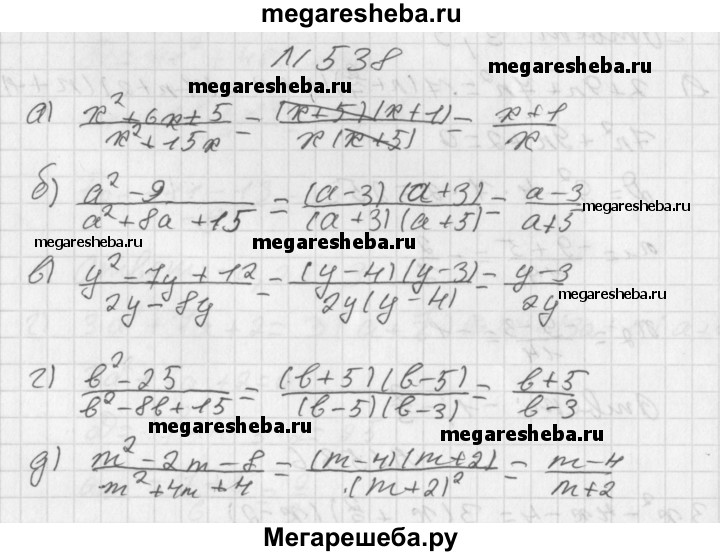 megaresheba.ru
N 538
megaresheba.ru megaresheba.ru
а) (x²+6x+5)/(x²+15x) = ((x+5)(x+1))/(x(x+5)) = (x+1)/x
б) (a²-9)/(a²+8a+15) = ((a-3)(a+3))/((a+3)(a+5)) = (a-3)/(a+5)
megaresheba.ru megaresheba.ru megaresheba.ru
в) (y²-7y+12)/(2y-8y) = ((y-4)(y-3))/(2y(y-4)) = (y-3)/(2y)
megaresheba.ru
г) (b²-25)/(b²-8b+15) = ((b+5)(b-5))/((b-5)(b-3)) = (b+5)/(b-3)
megaresheba.ru megaresheba.ru
д) (m²-2m-8)/(m²+4m+4) = ((m-4)(m+2))/((m+2)²) = (m-4)/(m+2)
Мегарешеба.ру